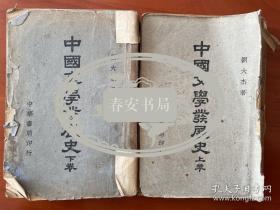 中國文學發展史上卷
劉大杰著
中國文學發展史下卷
中華書局印行
春安书局
孔夫子旧书网